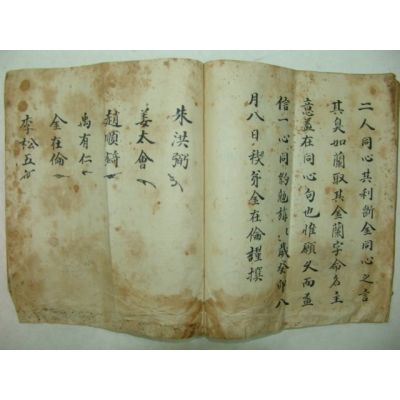 二人同心其利斷金同心之言
其臭如蘭取其金蘭字命名主
意盖在同心句也惟願久而益
信一心同約勉旃歲癸卯八
月八日稧弟金在倫謹撰
朱洪弼
姜太會
趙順錡
禹有仁
金在倫
李松五